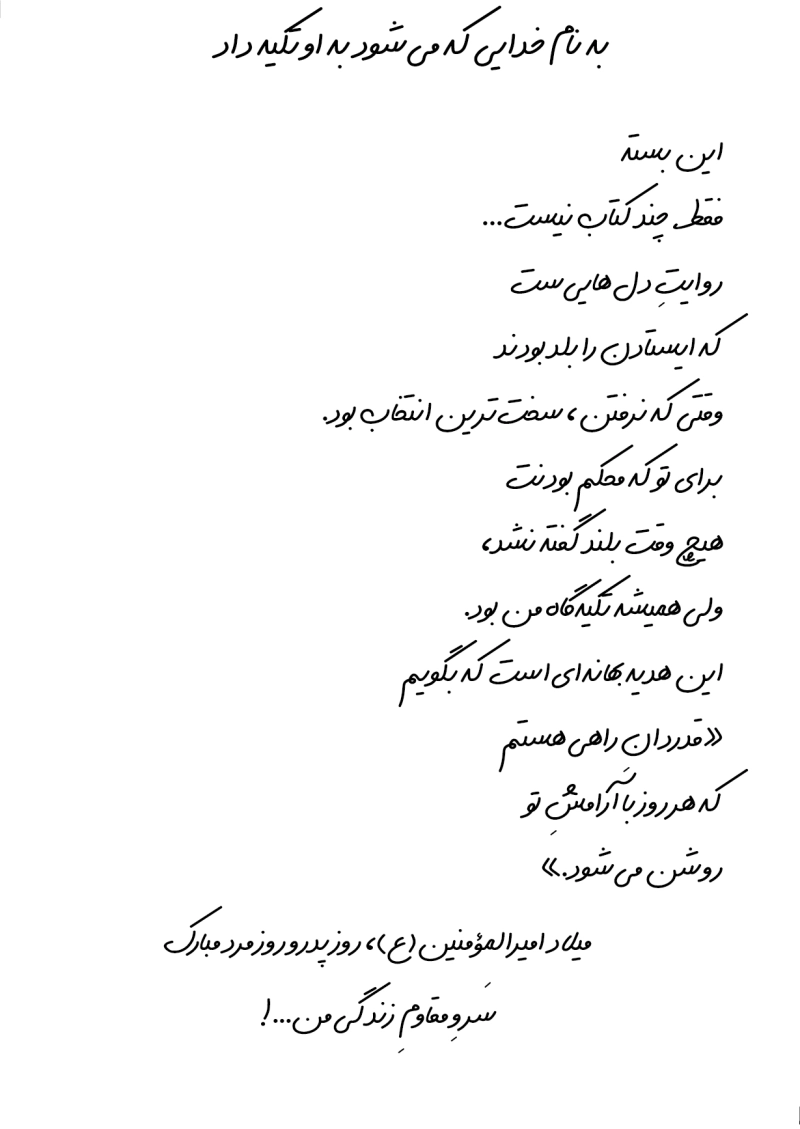 به نام خدایی که می شود به او تکیه داد
این بسته
فقط چند کتاب نیست...
روایتِ دل هایی ست
که ایستادن را بلد بودند
وقتی که نرفتن، سخت ترین انتخاب بود.
برای تو که محکم بودنت
هیچ وقت بلند گفته نشد،
ولی همیشه تکیه گاه من بود.
این هدیه بهانه ای است که بگویم
«قدردان راهی هستم
که هر روز با آرامشِ تو
روشن می شود.»
میلاد امیرالمؤمنین (ع)، روز پدر و روز مرد مبارک
سَروِ مقاومِ زندگی من...!